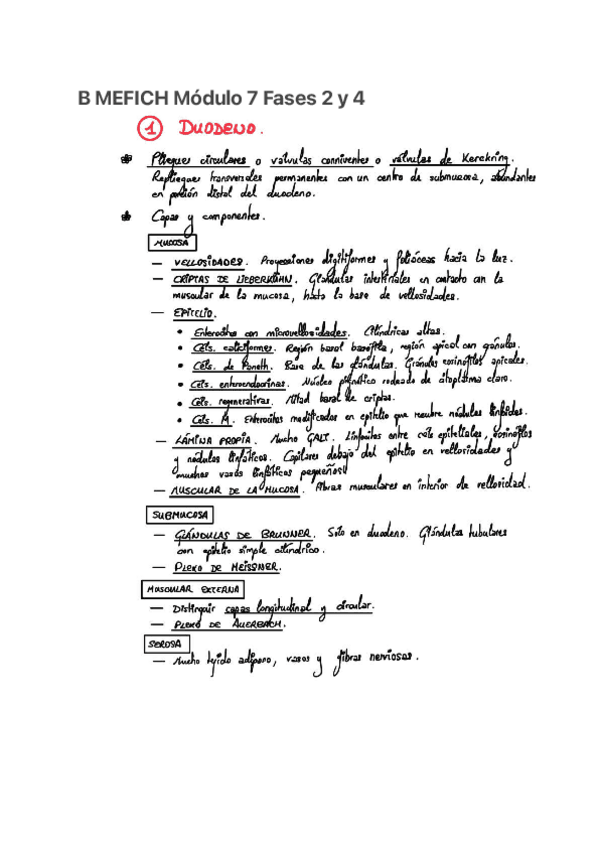 B MEFICH Módulo 7 Fases 2 y 4
1 DUODENO.
Pliegues circulares o válvulas conniventes o válvulas de Kerckring.
Repliegues transversales permanentes con un centro de submucosa, abundantes
en porción distal del duodeno.
Capas y componentes.
MUCOSA
— VELLOSIDADES. Proyecciones digitiformes y foliáceas hacia la luz.
— CRIPTAS DE LIEBERKÜHN. Glándulas intestinales en contacto con la
muscular de la mucosa, hasta la base de vellosidades.
— EPITELIO.
• Enterocitos con microvellosidades. Cilíndricas altas.
• Céls. caliciformes. Región basal basófila, región apical con gránulos.
• Céls. de Paneth. Base de las glándulas. Gránulos eosinófilos apicales.
• Céls. enteroendocrinas. Núcleo picnótico rodeado de citoplasma claro.
• Céls. regenerativas. Mitad basal de criptas.
• Céls. M. Enterocitos modificados en epitelio que recubre nódulos linfoides.
— LÁMINA PROPIA. Mucho GALT. Linfocitos entre céls epiteliales, eosinófilos
y nódulos linfáticos. Capilares debajo del epitelio en vellosidades y
muchos vasos linfáticos pequeños
— MUSCULAR DE LA MUCOSA. Fibras musculares en interior de vellosidad.
SUBMUCOSA
— GLÁNDULAS DE BRUNNER. Solo en duodeno. Glándulas tubulares
con epitelio simple cilíndrico.
— PLEXO DE MEISSNER.
MUSCULAR EXTERNA
— Distinguir capas longitudinal y circular.
— PLEXO DE AUERBACH.
SEROSA
— Mucho tejido adiposo, vasos y fibras nerviosas.